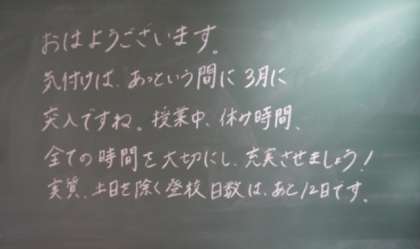 おはようございます。
気付けば、あっという間に3月に
突入ですね。授業中、休み時間、
全ての時間を大切にし、充実させましょう!
実質、土日を除く登校日数は、あと12日です。